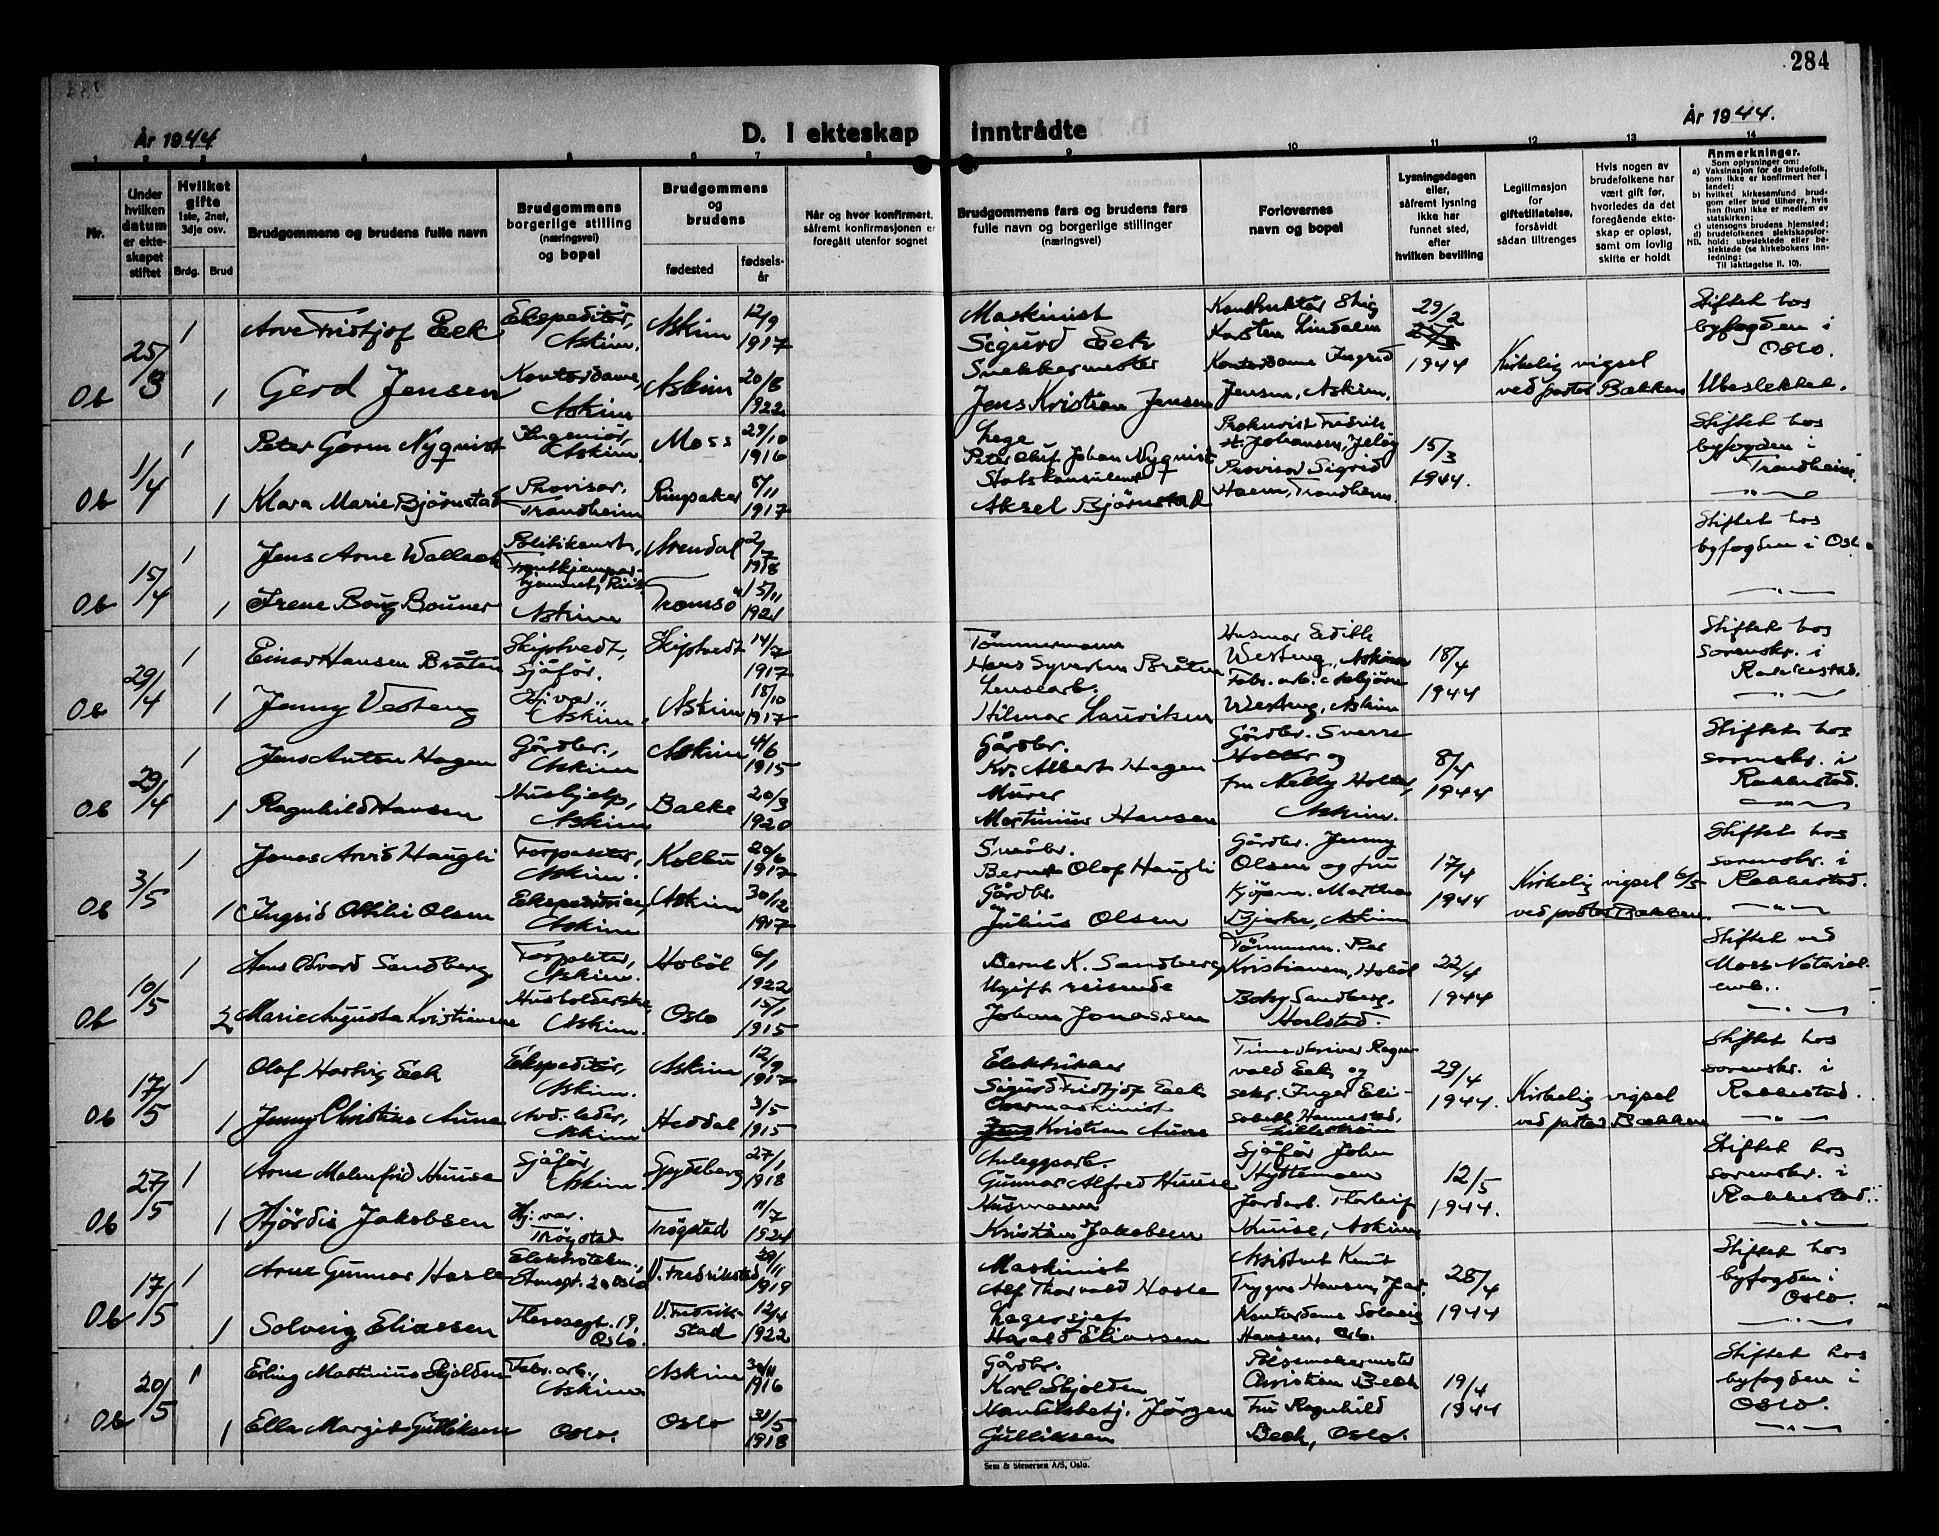 284
År 1944
D. I ekteskap inntrådte
År 1944.
1 2 3 4 5 6 7 8 9 10 11 12 13 14
Nr.
Under hvilken datum er ekteskapet stiftet
Hvilket gifte 1ste, 2net, 3dje osv.
Brdg. Brud
Brudgommens og brudens fulle navn
Brudgommens borgerlige stilling (næringsvei) og bopel
Brudgommens og brudens
fødested fødselsår
Når og hvor konfirmert, såfremt konfirmasjonen er foregått utenfor sognet
Brudgommens fars og brudens fars fulle navn og borgerlige stillinger (næringsvei)
Forlovernes navn og bopel
Lysningsdagen eller, såfremt lysning ikke har funnet sted, efter hvilken bevilling
Legitimasjon for giftetillatelse, forsåvidt sådan tiltrenges
Hvis nogen av brudefolkene har vært gift før, hvorledes da det foregående ekteskap er opløst, samt om lovlig skifte er holdt
Anmerkninger.
Som oplysninger om:
a) Vaksinasjon for de brudefolk, som ikke er konfirmert her i landet;
b) hvilket kirkesamfund brudgom eller brud tilhører, hvis han (hun) ikke er medlem av statskirken;
c) utensogns brudens hjemsted;
d) brudefolkenes slektskapsforhold: ubeslektede eller beslektede (se kirkebokens innledning;
NB. Til iakttagelse II. 10).
Ob 25/3 1 Arve Fridtjof Eek Ekspeditør, Askim. Askim 12/9 1917 Maskinist Sigurd Eek Konduktør Stig Karsten Lindalen 29/2 1944 Stiftet hos byfogden i Oslo.
1 Gerd Jensen Kontordame, Askim Askim 20/8 1922 Snekkermester Jens Kristian Jensen Kontordame Ingrid Jensen, Askim. Kirkelig vigsel ved pastor Bækken Ubeslektet.
Ob 1/4 1 Peter Gorm Nyquist Ingeniør, Askim. Moss 29/10 1916 Lege Peter Oluf Johan Nyquist Prokurist Fredrik H. Johansen, Jeløy 15/3 1944. Stiftet hos byfogden i Trondheim.
1 Klara Marie Bjørnstad Provisor, Trondheim Ringsaker 5/11 1917 Statskonsulent Aksel Bjørnstad Provisor Sigrid Haem, Trondheim. —"—
Ob 15/4 1 Jens Arne Wallack Politikonst., Arendal 2/7 1918 Stiftet hos byfogden i Oslo
1 Irene Boug Bouner Askim Tromsö 15/11 1921 —"—
Ob 29/4 1 Einar Hansen Bråten Skiptvedt, Sjåfør. Skiptvedt 14/7 1917 Tömmermann Hans Syvertsen Bråten Husmor Edith Westeng, Askim 18/4 1944 Stiftet hos sorenskr. i Rakkestad.
1 Jenny Vesteng Hj. vær., Askim. Askim 18/10 1917 Lensearb. Hilmar Lauritsen Fabr. arb. Asbjørn Westeng, Askim —"—
Ob 29/4 1 Jens Anton Hagen Gårdbr., Askim Askim 4/6 1915 Gårdbr. Kr. Albert Hagen Gårdbr. Sverre Holter og 8/4 1944 Stiftet hos sorenskr. i Rakkestad.
1 Ragnhild Hansen Hushjelp, Askim Balke 20/3 1920 Murer Martinius Hansen fru Nelly Holter, Askim. —"—
Ob 3/5 1 Jonas Arvid Haugli Torpeter, Askim. Kolbu 20/6 1917 Småbr. Bernt Olaf Haugli Gårdbr. Jenny Olsen og fru 17/4 1944 Kirkelig vigsel 6/5 ved pastor Bækken. Stiftet hos sorenskr. i Rakkestad.
1 Ingrid Ottilie Olsen Ekspeditrice, Askim Askim 30/12 1917 Gårdbr. Julius Olsen Kjøpm. Marthea Bjerke, Askim —"—
Ob 10/5 1 Hans Edvard Sandberg Askim. Hobøl 6/1 1922 Bernt K. Sandberg Tømmerm. Per Kristiansen, Hobøl 22/4 1944 Stiftet ved Moss Notarialemb.
2 Marie Augusta Kristiansen Husholderske, Askim. Oslo 15/1 1915 Ugift reisende Johan Jonassen Sandberg, Harlstad. —"—
Ob 17/5 1 Olaf Hartvig Eek Ekspeditør, Askim. Askim 12/9 1917 Elektriker Sigurd Fridtjof Eek Timeskriver Ragnvald Eek og 29/4 1944. Kirkelig vigsel ved pastor Bækken Stiftet hos sorenskr. i Rakkestad.
1 Jenny Christine Aune Avd. leder, Askim Heddal 3/5 1915 Overmaskinist Jens Kristian Aune sekr. Inger Elisabeth Hannestad, Lillestrøm —"—
Ob 27/5 1 Arne Malmfrid Huuse Sjåför Askim. Spydeberg 27/1 1918 Anleggsarb. Gunnar Alfred Huuse Sjåför John Hyttemoen 12/5 1944. Stiftet hos sorenskr. i Rakkestad.
1 Hjördis Jakobsen Hj. vær. Trøgstad Trøgstad 11/7 1924 Husmann Kristian Jakobsen Jordarb. Thorleif Huuse, Askim —"—
Ob 17/5 1 Arne Gunnar Hasle Elektrotekn., 20 Oslo V. Fredrikstad 29/11 1919 Maskinist Alf Thorvald Hasle Assistent Knut Trygve Hansen, 28/4 1944 Stiftet hos byfogden i Oslo.
1 Solveig Eliassen Theresegt. 19, Oslo. V. Fredrikstad 12/4 1922 Lagersjef Harald Eliassen Kontordame Solveig Hansen, Oslo. —"—
Ob 20/5 1 Erling Martinius Skjolden Fabr. arb., Askim Askim 30/11 1916 Gårdbr. Karl Skjolden Pölsemakermester Christian Beck 19/4 1944 Stiftet hos byfogden i Oslo.
1 Ella Margit Gulliksen Oslo. Oslo 31/5 1918 Handelsbetj. Jörgen Gulliksen Fru Ragnhild Beck, Oslo. —"—
Sem & Stenersen A/S, Oslo.